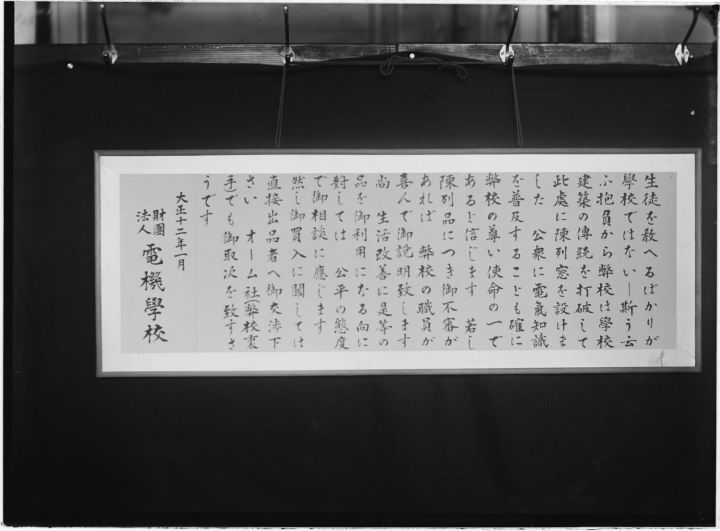 生徒を教へるばかりが
學校ではない―斯う云
ふ抱負から弊校は學校
建築の傳統を打破して
此處に陳列窓を設けま
した　公衆に電氣知識
を普及することも確に
弊校の尊い使命の一で
あると信じます　若し
陳列品につき御不審が
あれば　弊校の職員が
喜んで御説明致します
尚　生活改善に是等の
品を御利用になる向に
對しては　公平の態度
で御相談に應じます
然し御買入に關しては
直接出品者へ御交渉下
さい　オーム社(弊校裏
手)でも御取次を致すさ
うです
大正十二年一月
財團法人　電機學校